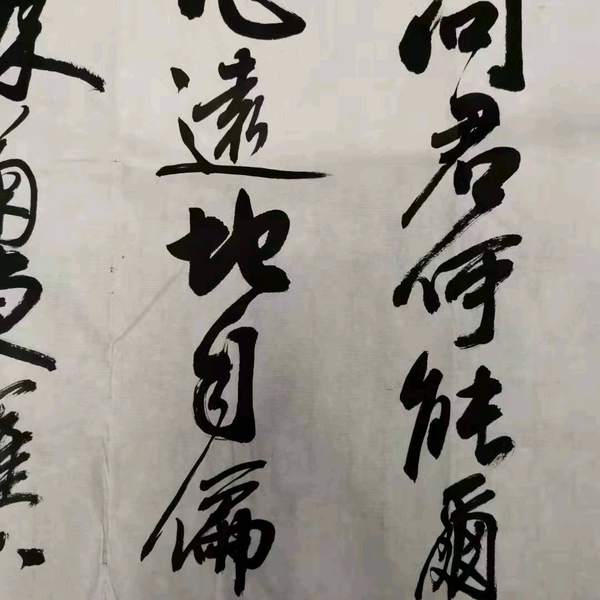 問君何能爾
心遠地自偏
采菊東籬